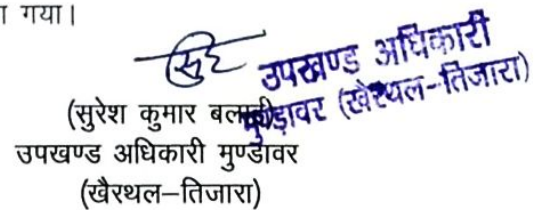 गया।
उपखण्ड अधिकारी
मुण्डावर (खैरथल-तिजारा)
(सुरेश कुमार
उपखण्ड अधिकारी मुण्डावर
(खैरथल–तिजारा)